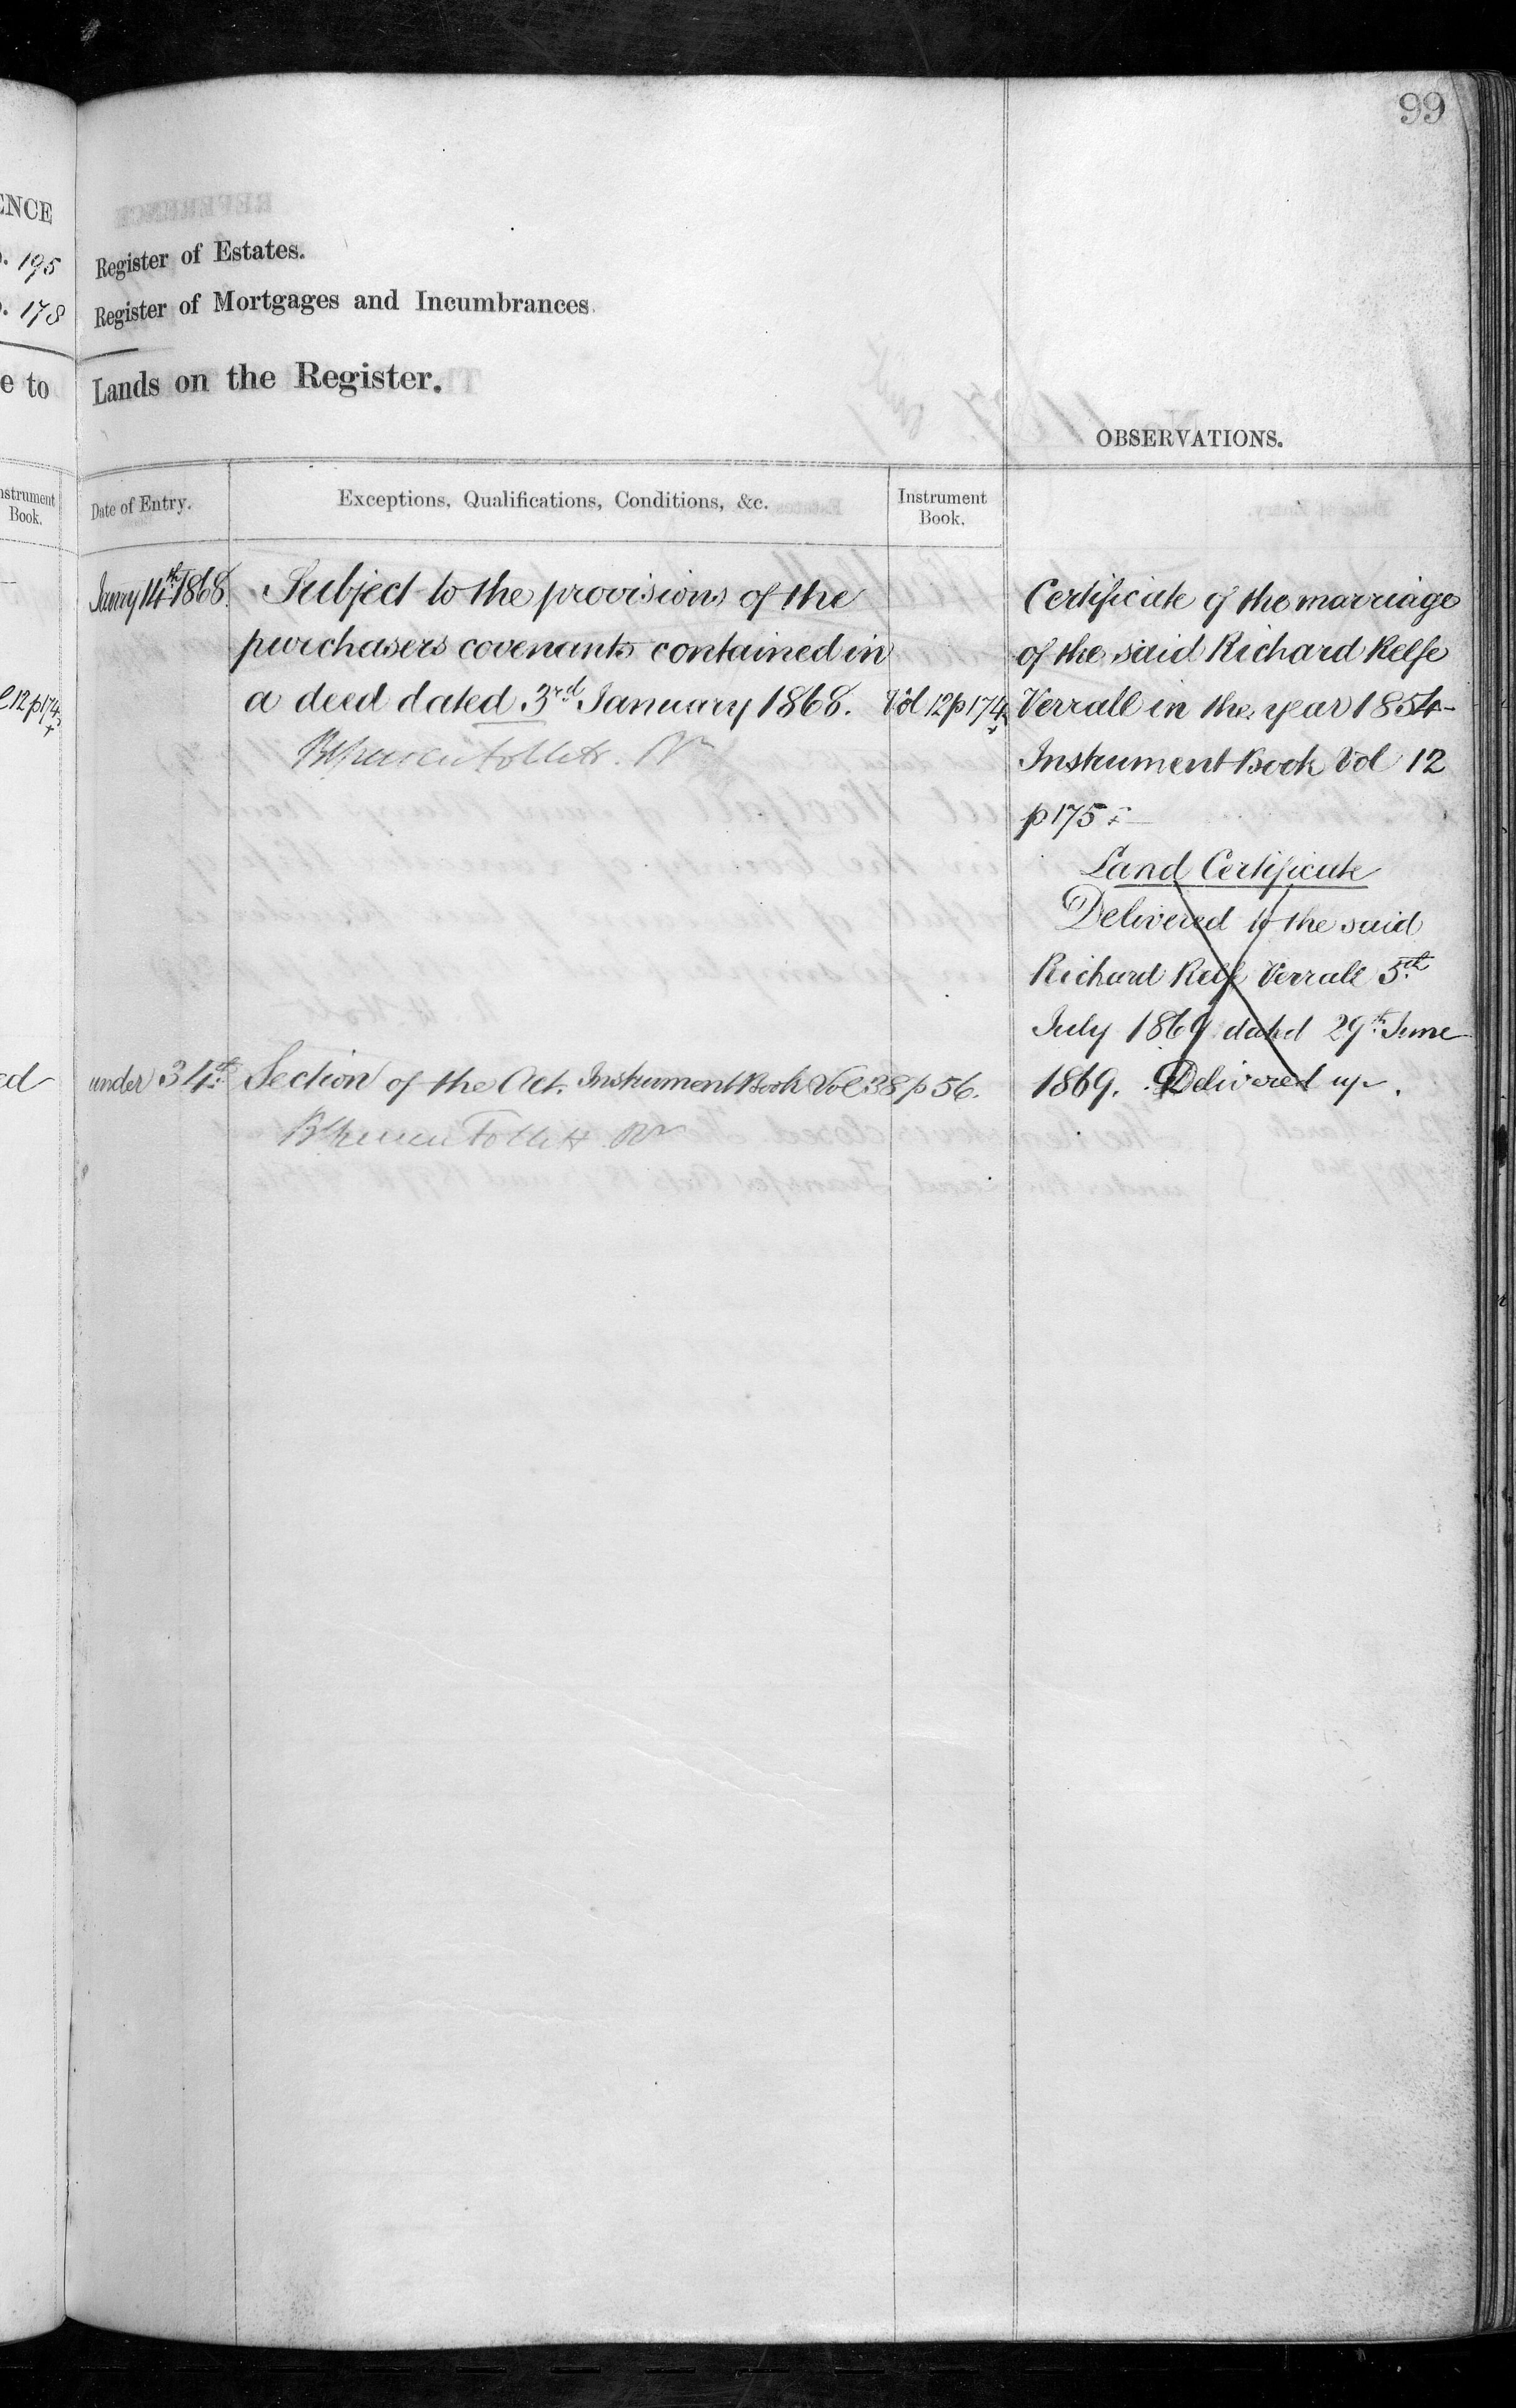 99
ENCE
. 195
. 178
e to
nstrument
Book.
l 12 p 174
ed
Register of Estates.
Register of Mortgages and Incumbrances.
Lands on the Register.
OBSERVATIONS.
Date of Entry.
Exceptions, Qualifications, Conditions, &c.
Instrument
Book.
Janry 14th 1868. Subject to the provisions of the
purchasers covenants contained in
a deed dated 3rd January 1868. Vol 12 p 174
under 34th Section of the Act. Instrument Book Vol 38 p 56.
Certificate of the marriage
of the said Richard Relfe
Verrall in the year 1854
Instrument Book Vol 12
p 175
Land Certificate
Delivered to the said
Richard Relfe Verrall 5th
July 1869 dated 29th June
1869. Delivered up.